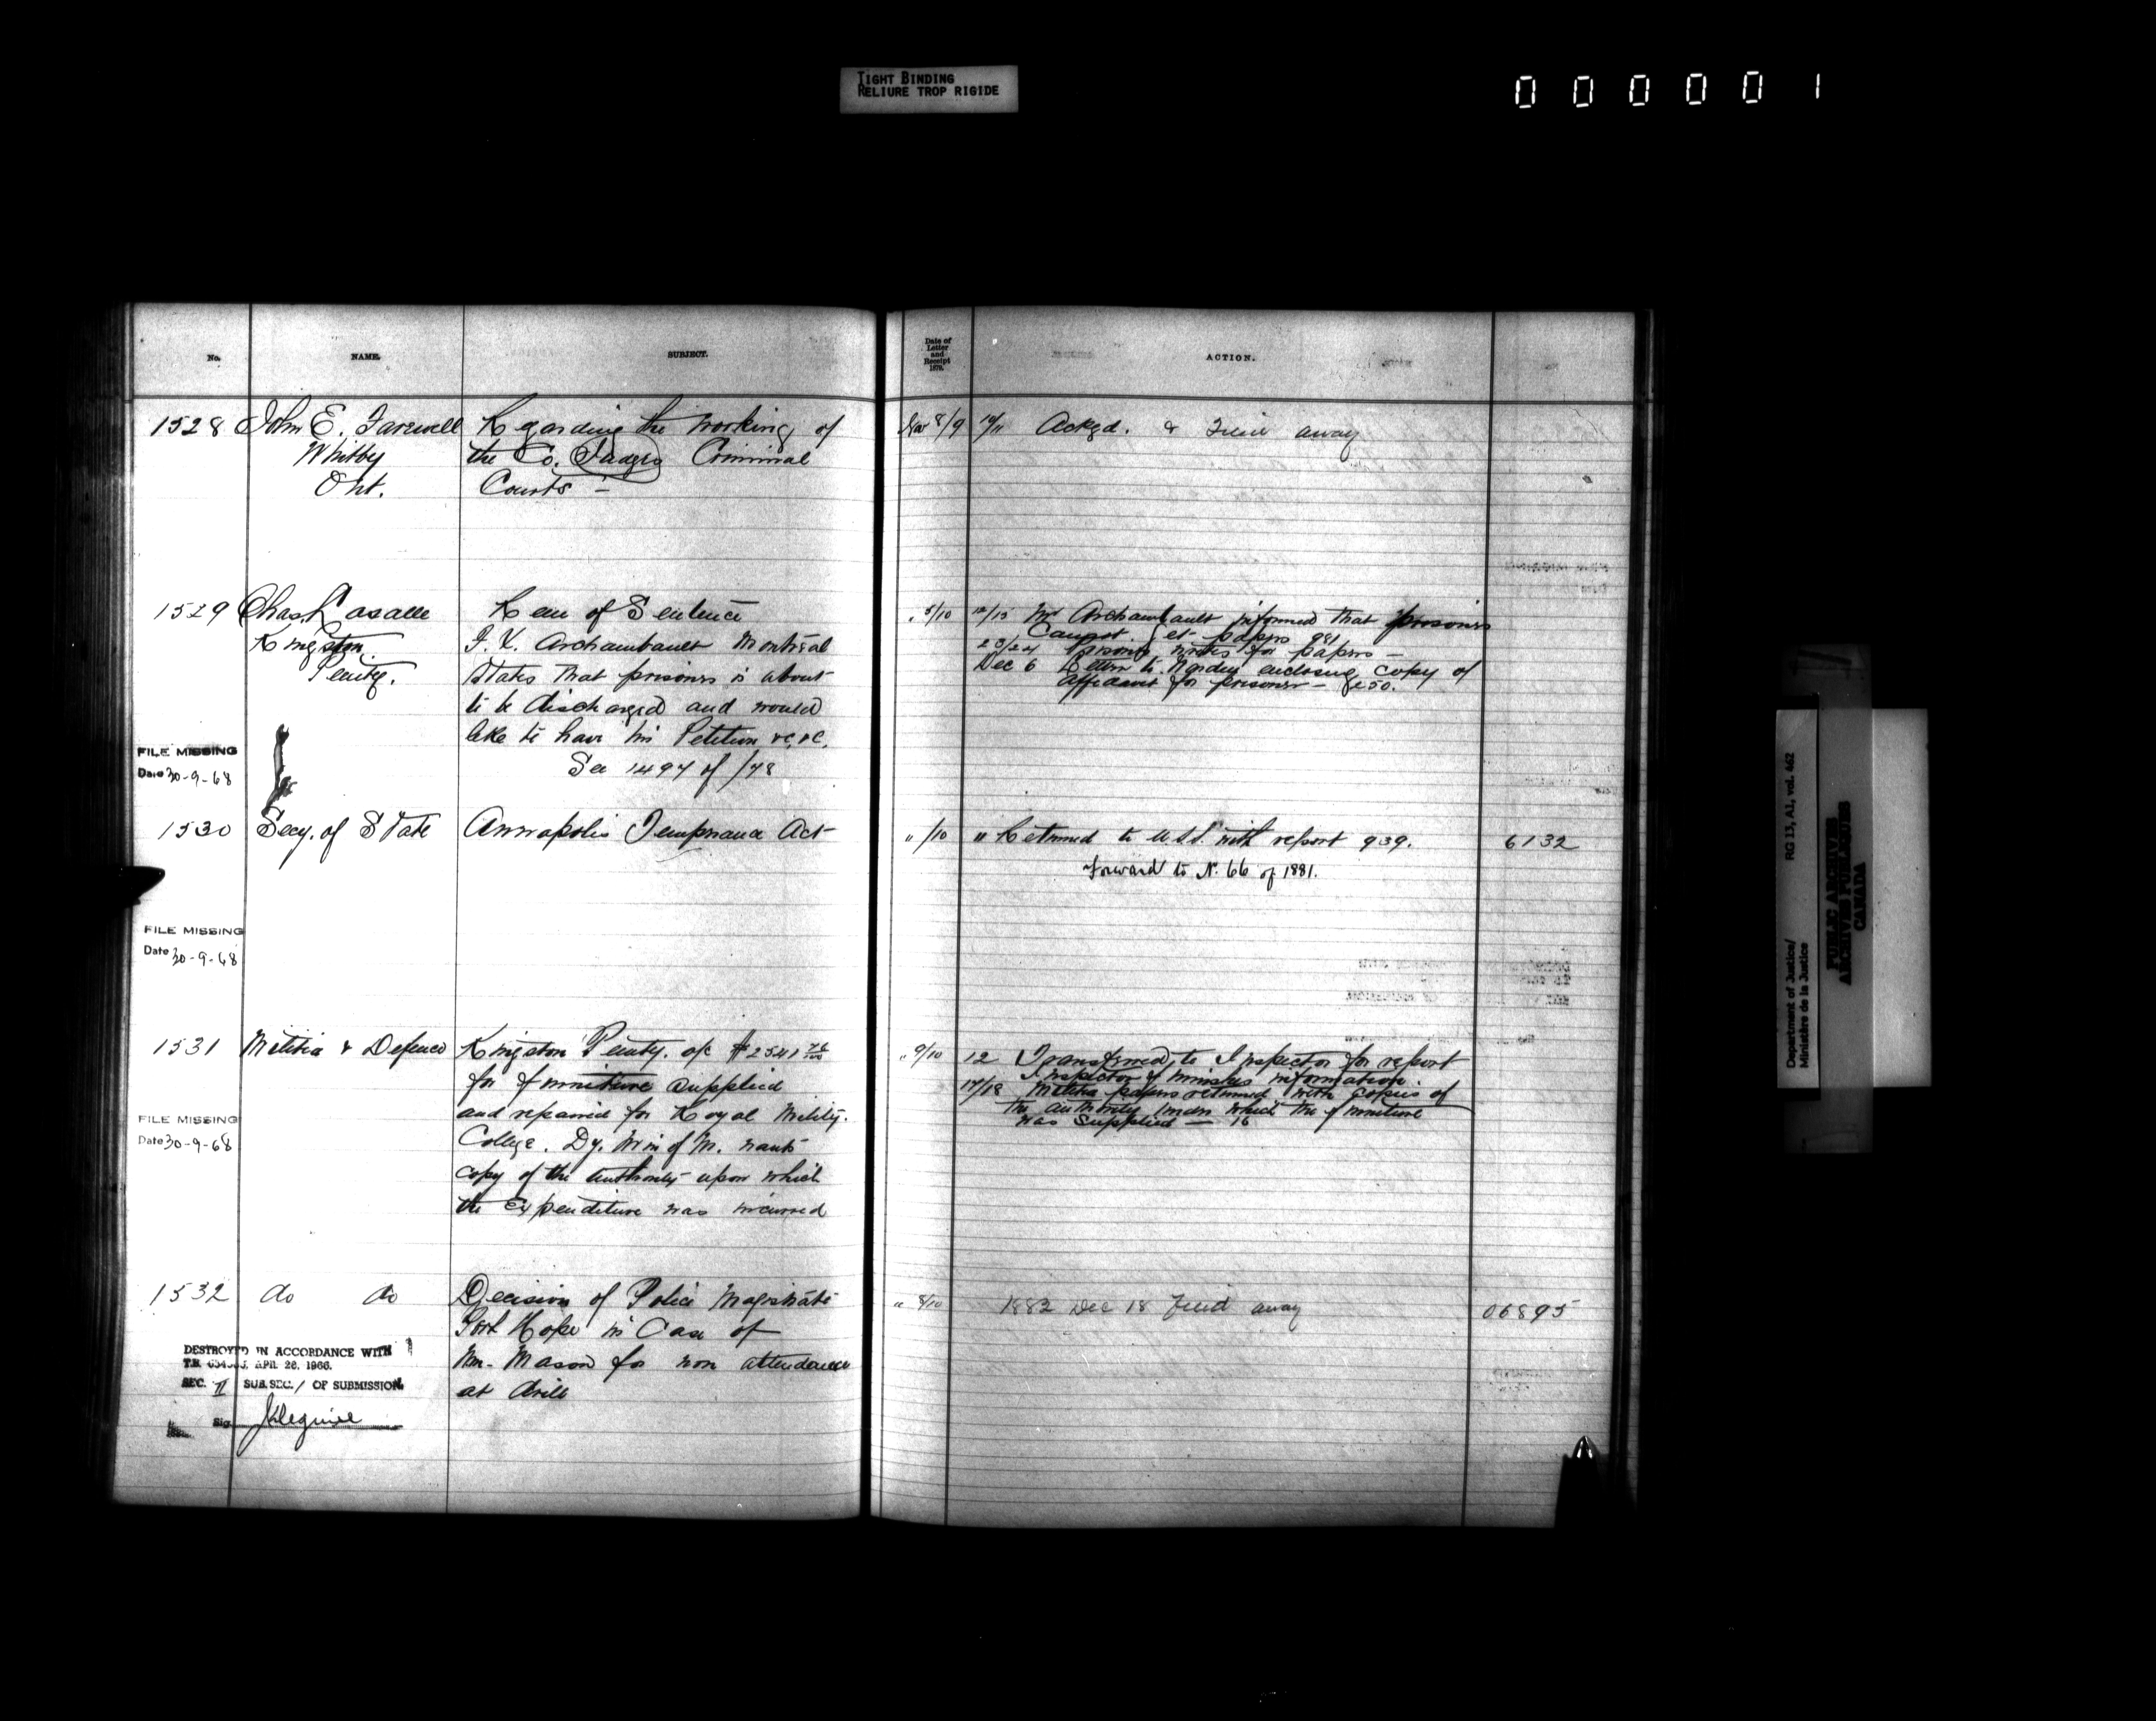 TIGHT BINDING
RELIURE TROP RIGIDE
000001
No. NAME. SUBJECT.
Date of Letter and Receipt 1879. ACTION.
1528 John E. Farewell Regarding the working of
Whitby the Co. Judges Criminal
Ont. Courts –
Nov 8/9 10/11 Ackgd. & Filed away
1529 Chas. Lasalle Rem of Sentence
Kingston Archambault Montreal
Penty. States that prisoner is about
to be discharged and would
like to have his Petition &c, &c.
See 1497 of /78
FILE MISSING
Date 30-9-68
" 5/10 12/13 Mr Archambault informed that prisoner
Cannot get papers 981
23/24 Prisoner writes for papers –
Dec 6 Letter to Warden enclosing copy of
affidavit for prisoner –
1530 Secy. of State Annapolis Temperance Act
" /10 " Returned to U.S.S. with report 939. 6132
Forward to N. 66 of 1881.
FILE MISSING
Date 30-9-68
1531 Militia & Defence Kingston Penty. a/c $2541
for furniture supplied
and repaired for Royal Military.
College. Dy. Min of M. wants
copy of the authority upon which
the Expenditure was incurred
FILE MISSING
Date 30-9-68
" 9/10 12 Transferred to Inspector for report
Inspector Ministers information.
17/18 Militia papers returned with copies of
the authority under which the furniture
was supplied — 16
1532 do do Decision of Police Magistrate
Port Hope in Case of
Wm. Mason for non attendance
at drill
" 8/10 1882 Dec 18 Filed away 06895
DESTROYED IN ACCORDANCE WITH
T.B. APR. 26, 1966.
SEC. II SUB.SEC. 1 OF SUBMISSION
Sig.
Department of Justice/ RG 13, A1, vol. 462
Ministère de la Justice
PUBLIC ARCHIVES
ARCHIVES PUBLIQUES
CANADA